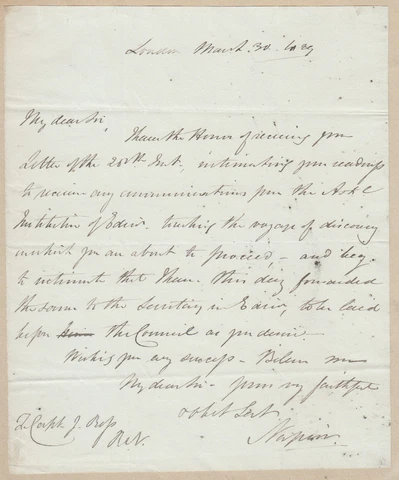 London March 30. 1839
My dear Sir,
I have the Honor of receiving your
Letter of the 28th Inst. intimating your readiness
to receive any communications from the
Institution of Edinr. touching the voyage of discovery
on which you are about to proceed, - and beg
to intimate that I have this day forwarded
the same to the Secretary in Edinr, to be laid
before the Council as you desire.
Wishing you every success - Believe me
My dear Sir - yours very faithful
& obet Sert
To Capt J. Ross
R.N.